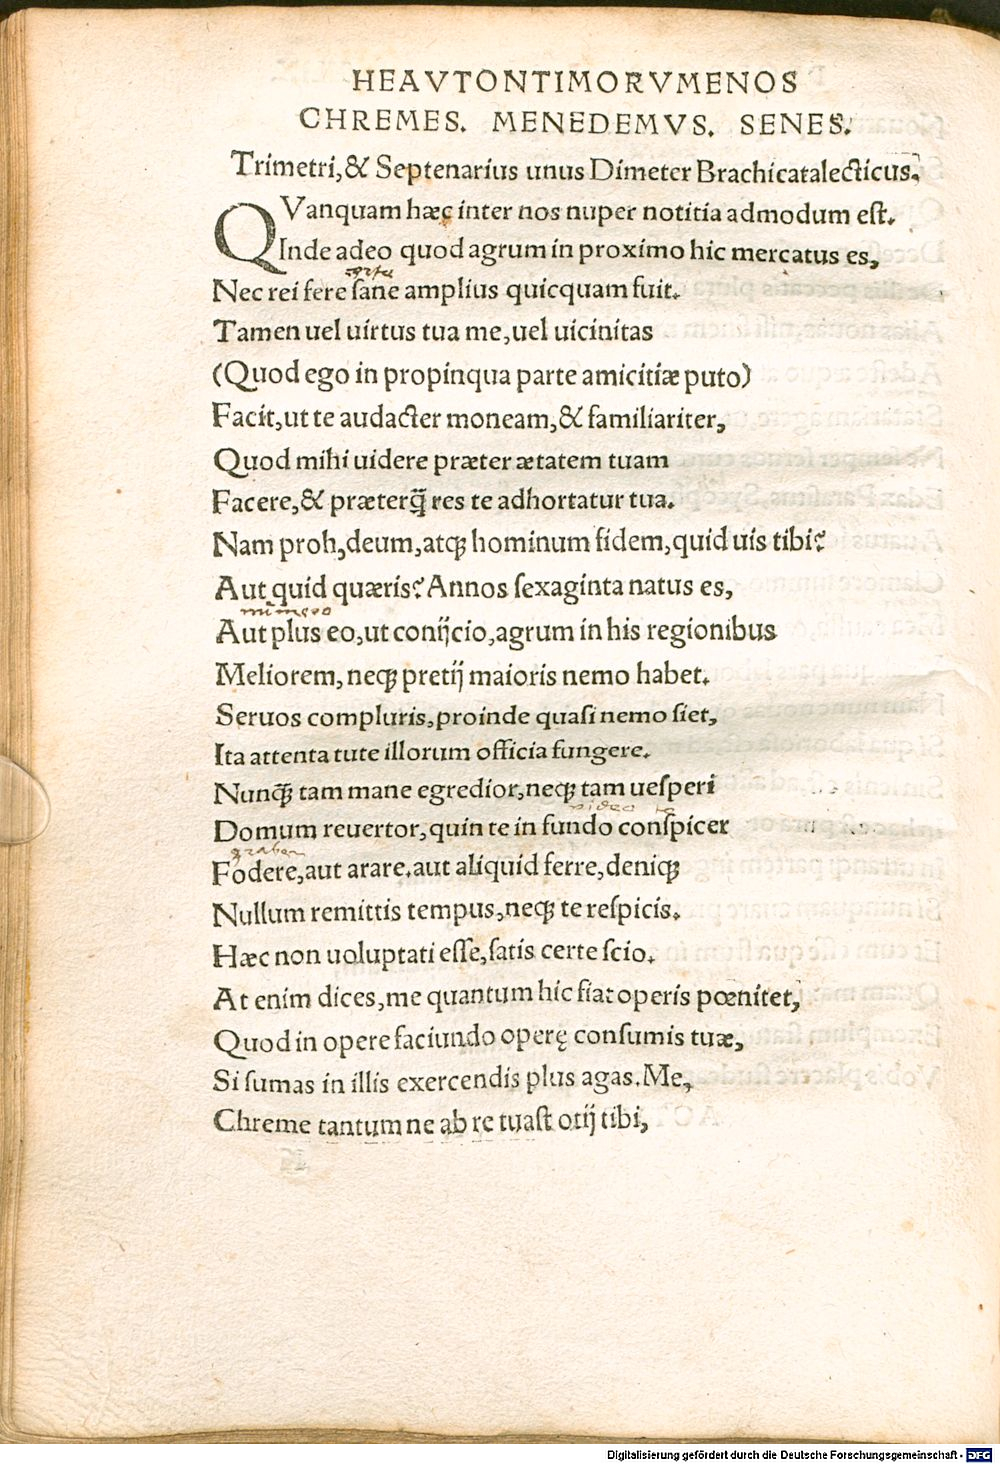 HEAVTONTIMORVMENOS
CHREMES. MENEDEMVS. SENES.
Trimetri,& Septenarius unus Dimeter Brachicatalecticus.
QVanquam hæc inter nos nuper notitia admodum est.
Inde adeo quod agrum in proximo hic mercatus es,
certe
Nec rei fere sane amplius quicquam fuit.
Tamen uel uirtus tua me,uel uicinitas
(Quod ego in propinqua parte amicitiæ puto)
Facit,ut te audacter moneam,& familiariter,
Quod mihi uidere præter ætatem tuam
Facere,& præterq̃ res te adhortatur tua.
Nam proh,deum,atqȝ hominum fidem,quid uis tibi?
Aut quid quæris? Annos sexaginta natus es,
Aut plus eo,ut conijcio,agrum in his regionibus
Meliorem,neqȝ pretij maioris nemo habet.
Seruos compluris,proinde quasi nemo siet,
Ita attenta tute illorum officia fungere.
Nunqȝ̃ tam mane egredior,neqȝ tam uesperi
video te
Domum reuertor,quin te in fundo conspicer
graben
Fodere,aut arare,aut aliquid ferre,deniqȝ
Nullum remittis tempus,neqȝ te respicis.
Hæc non uoluptati esse,satis certe scio.
At enim dices,me quantum hic fiat operis pœnitet,
Quod in opere faciundo operę consumis tuæ,
Si sumas in illis exercendis plus agas.Me,
Chreme tantum ne ab re tuast otij tibi,
Digitalisierung gefördert durch die Deutsche Forschungsgemeinschaft - DFG